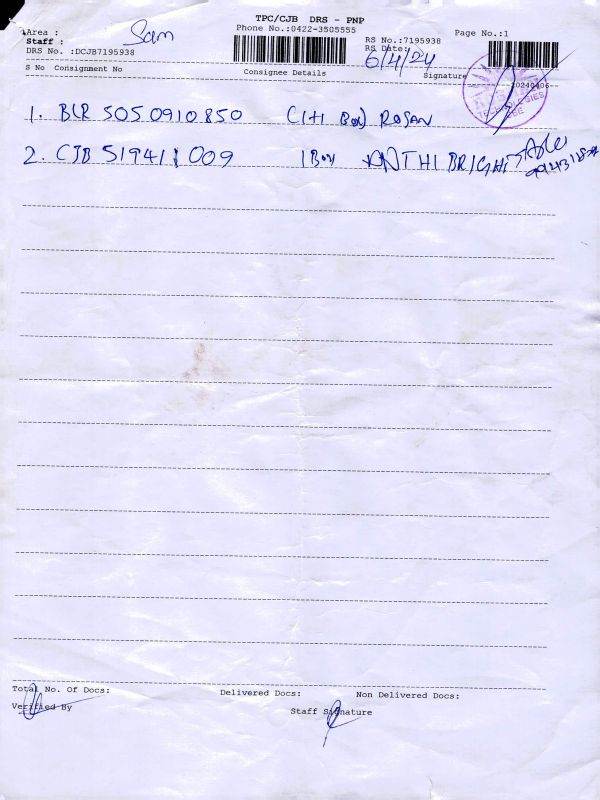 TPC/CJB DRS - PNP
Area :
Phone No.:0422-3505555
RS No.:7195938
Page No.:1
Staff : Sam
RS Date: 6/4/24
DRS No. :DCJB7195938
S No Consignment No
Consignee Details
Signature
20240406
1. BLR 5050910850 (1+1 Box) ROSAN
2. CJB 519411009 1 Box
TECHNOLOGIES
CBE
Total No. Of Docs:
Delivered Docs:
Non Delivered Docs:
Verified By
Staff Signature